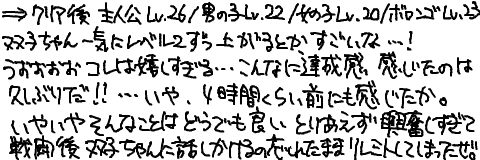 ⇒クリア後 主人公Lv.26/男の子Lv.22/女の子Lv.20/ボロンゴLv.23
双子ちゃん一気にレベル2ずつ上がるとかすごいな…!
うおおおおコレは嬉しすぎる…こんなに達成感 感じたのは
久しぶりだ!!…いや、4時間くらい前にも感じたか。
いやいやそんなことはどうでも良い とりあえず興奮しすぎて
戦闘後 双子ちゃんに話しかけるの忘れたままリレミトしてしまったぜ。